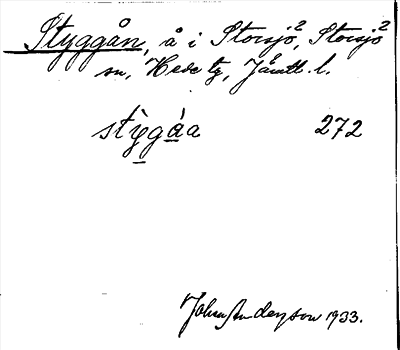 Styggån, å i Storsjö², Storsjö²
sn, Hede tg, Jämtl. l.
stỳgáa 272
John Anderson 1933.